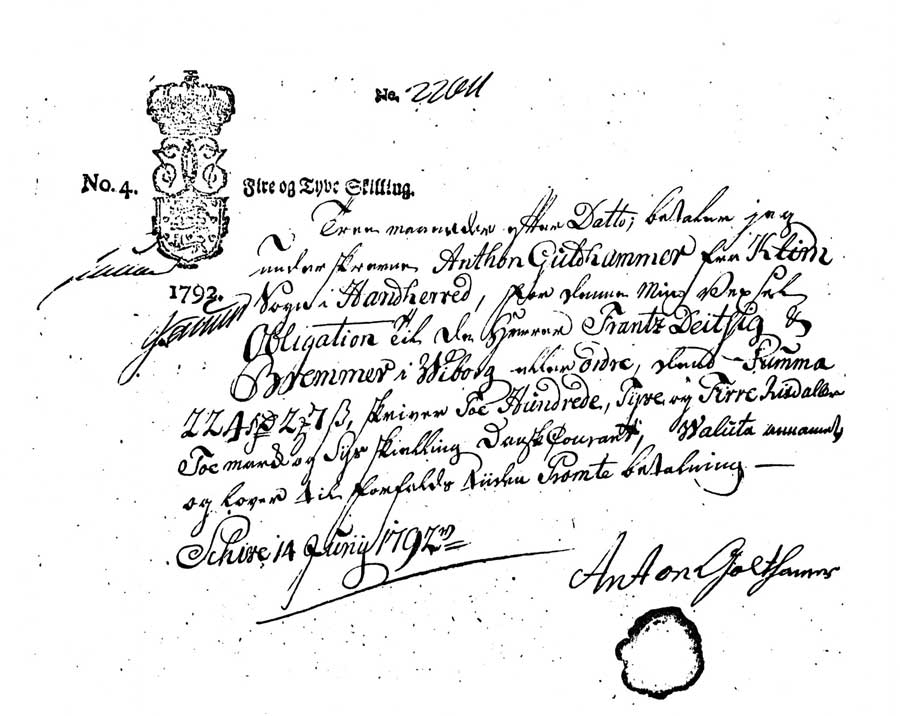 No. 2264
No. 4. Fire og Tyve Skilling.
Tree maaneder efter Datto, betaler jeg
underskrevne Anthon Guldhammer fra Klim
1792.
Sogn i Handherred, for denne Min Vexsel
Obligation til de Herrer Frantz Deitsig &
Bremmer i Wiborg eller ordre, dend Summa
224 2 7 ß, skriver Toe Hundrede, Tyve og Firre Rixdaller
Toe marck og Syv skielling Dansk Courant, Waluta annammet
og lover til forfalds tiiden Promte betalning —
Schive 14 Junij 1792
Anton Golthamer